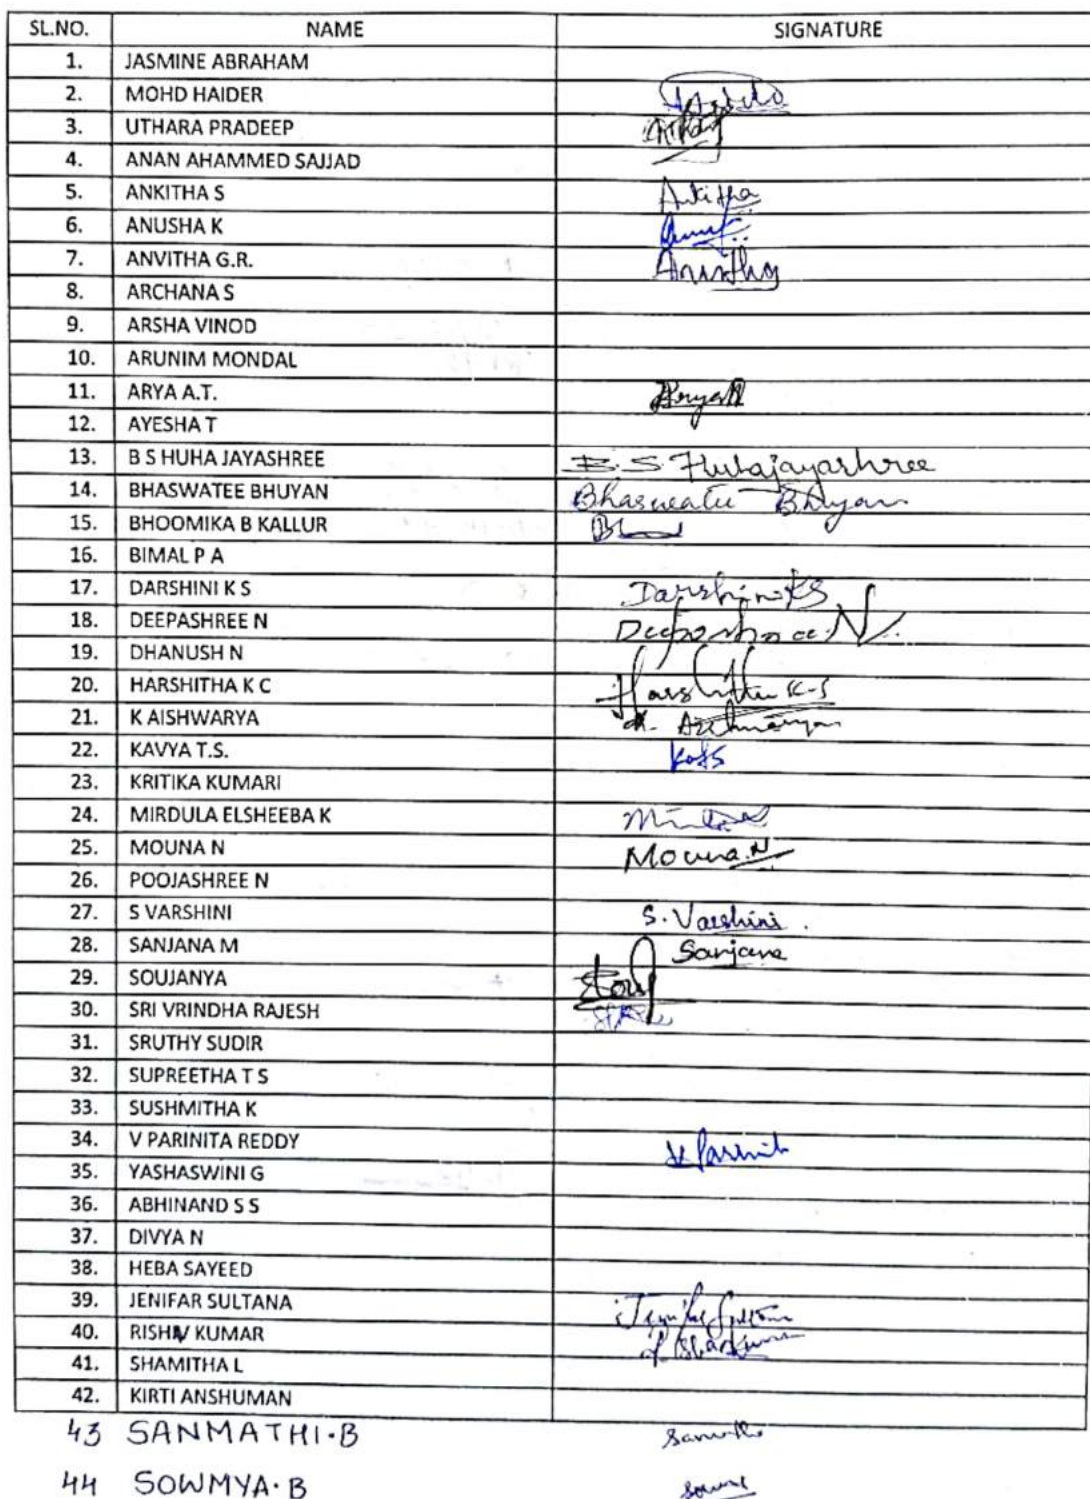 SL.NO. NAME SIGNATURE
1. JASMINE ABRAHAM
2. MOHD HAIDER
3. UTHARA PRADEEP
4. ANAN AHAMMED SAJJAD
5. ANKITHA S Ankitha
6. ANUSHA K
7. ANVITHA G.R. Anvitha
8. ARCHANA S
9. ARSHA VINOD
10. ARUNIM MONDAL
11. ARYA A.T. Arya
12. AYESHA T
13. B S HUHA JAYASHREE B. S Huhajayashree
14. BHASWATEE BHUYAN Bhaswatee Bhuyan
15. BHOOMIKA B KALLUR
16. BIMAL P A
17. DARSHINI K S Darshini KS
18. DEEPASHREE N Deepashree N
19. DHANUSH N
20. HARSHITHA K C Harshitha K-C
21. K AISHWARYA K. Aishwarya
22. KAVYA T.S.
23. KRITIKA KUMARI
24. MIRDULA ELSHEEBA K
25. MOUNA N Mouna.N
26. POOJASHREE N
27. S VARSHINI S. Varshini
28. SANJANA M Sanjana
29. SOUJANYA
30. SRI VRINDHA RAJESH
31. SRUTHY SUDIR
32. SUPREETHA T S
33. SUSHMITHA K
34. V PARINITA REDDY V Parinit
35. YASHASWINI G
36. ABHINAND S S
37. DIVYA N
38. HEBA SAYEED
39. JENIFAR SULTANA Jenifar Sultana
40. RISHAV KUMAR
41. SHAMITHA L
42. KIRTI ANSHUMAN
43 SANMATHI.B Sanmathi
44 SOWMYA.B